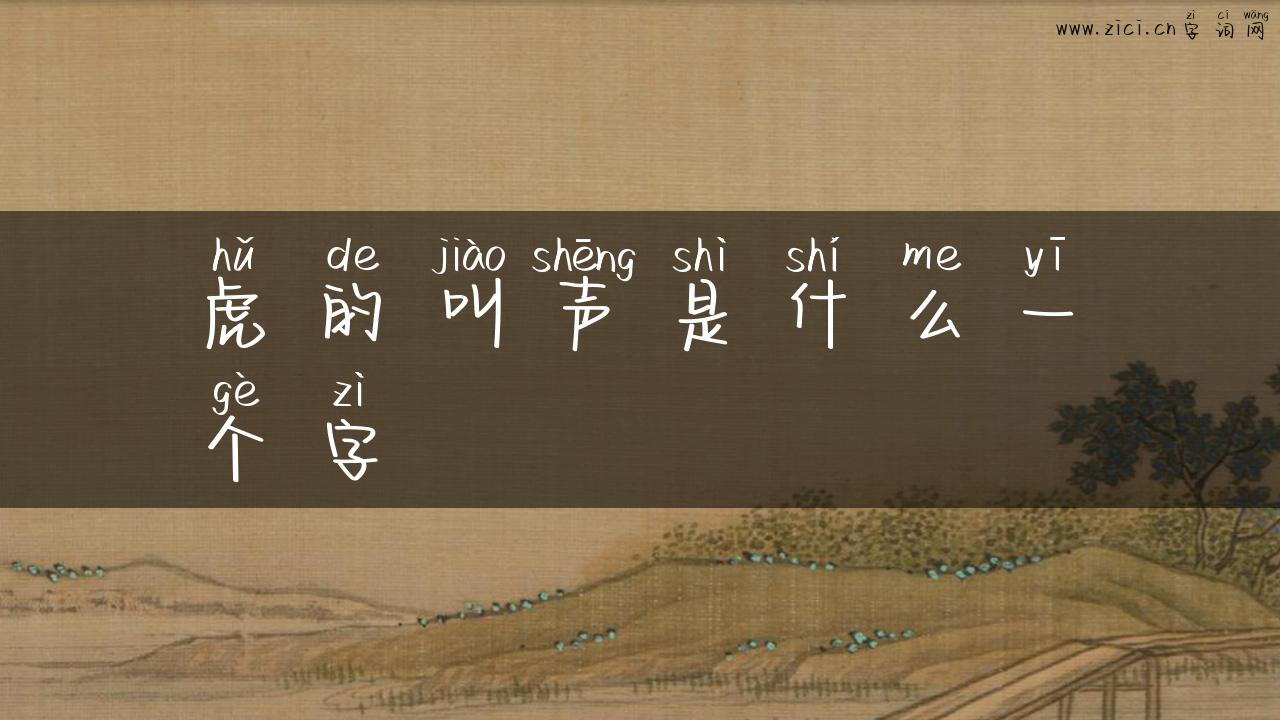 zì cí wǎng
www.zici.cn 字词网
hǔ de jiào shēng shì shí me yī
虎的叫声是什么一
gè zì
个字